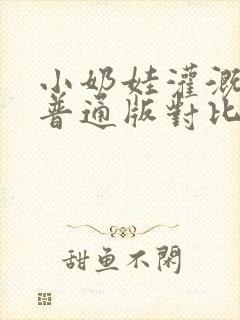 小奶娃灌溉
普通版對比
甜鱼不閑